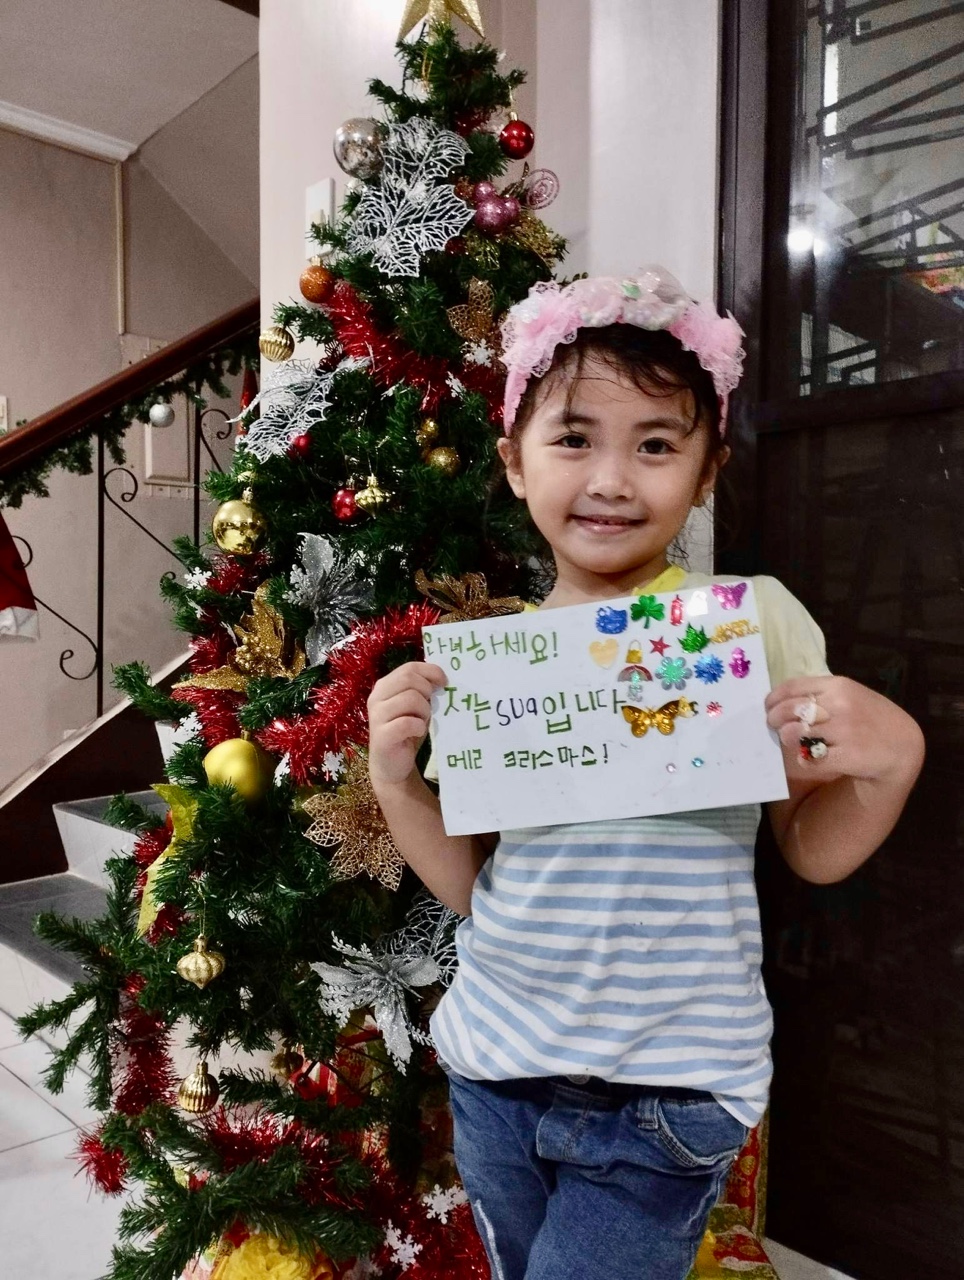 안녕하세요!
저는 sua입니다
메리 크리스마스!